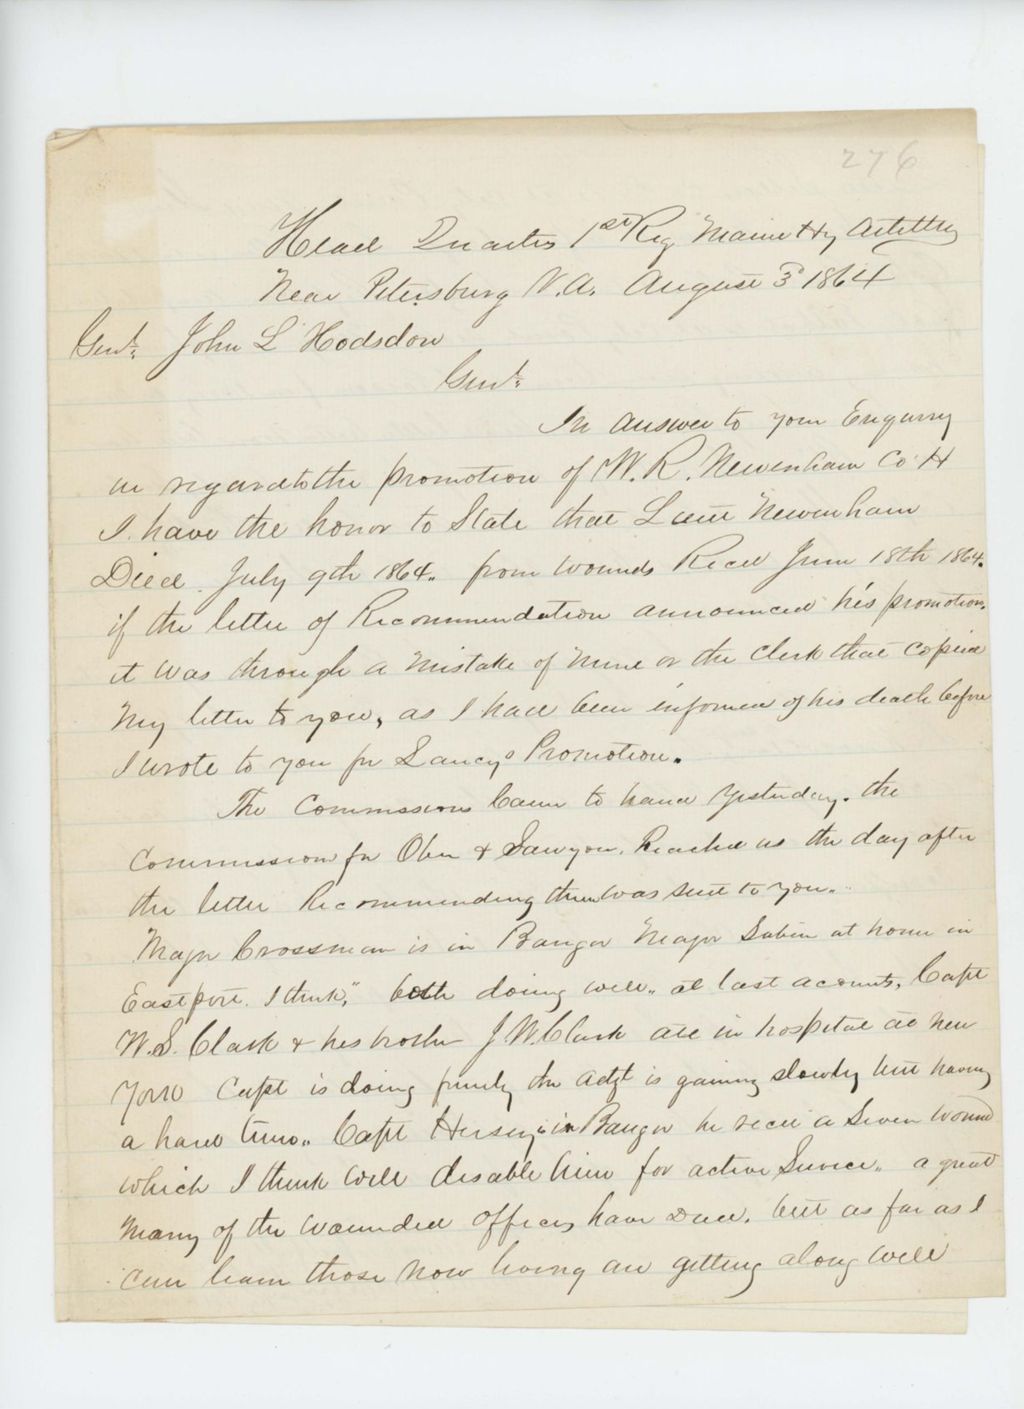 276
Head Quarters 1st Reg Maine Hy Artillery
Near Petersburg V.A. August 3d 1864
Genl. John L Hodsdon
Genl.
In answer to your Enquirry
in regard to the promotion of W. R. Newenham Co H
I have the honor to State that Lieut Newenham
Died July 9th 1864. from wounds Recd June 18th 1864.
if the letter of Recommendation announced his promotion.
it was through a mistake of mine or the Clerk that Copied
my letter to you, as I had been informed of his death before
I wrote to you for Promotion.
The Commissions Came to hand Yesterday. the
Commission for Ober & Sawyer. Reached us the day after
the letter Recommending them was sent to you.
Major Crossman is in Bangor Major Sabin at home in
Eastport. I think, both doing well. at last accounts. Capt
W. S. Clark & his brother J W. Clark are in hospital at New
York Capt is doing finely the Adgt is gaining slowly but having
a hard time. Capt Hersey is in Bangor he recd a Seveer wound
which I think will disable him for active Service. a great
many of the wounded officers have Died. but as far as I
can learn those now living are getting along well